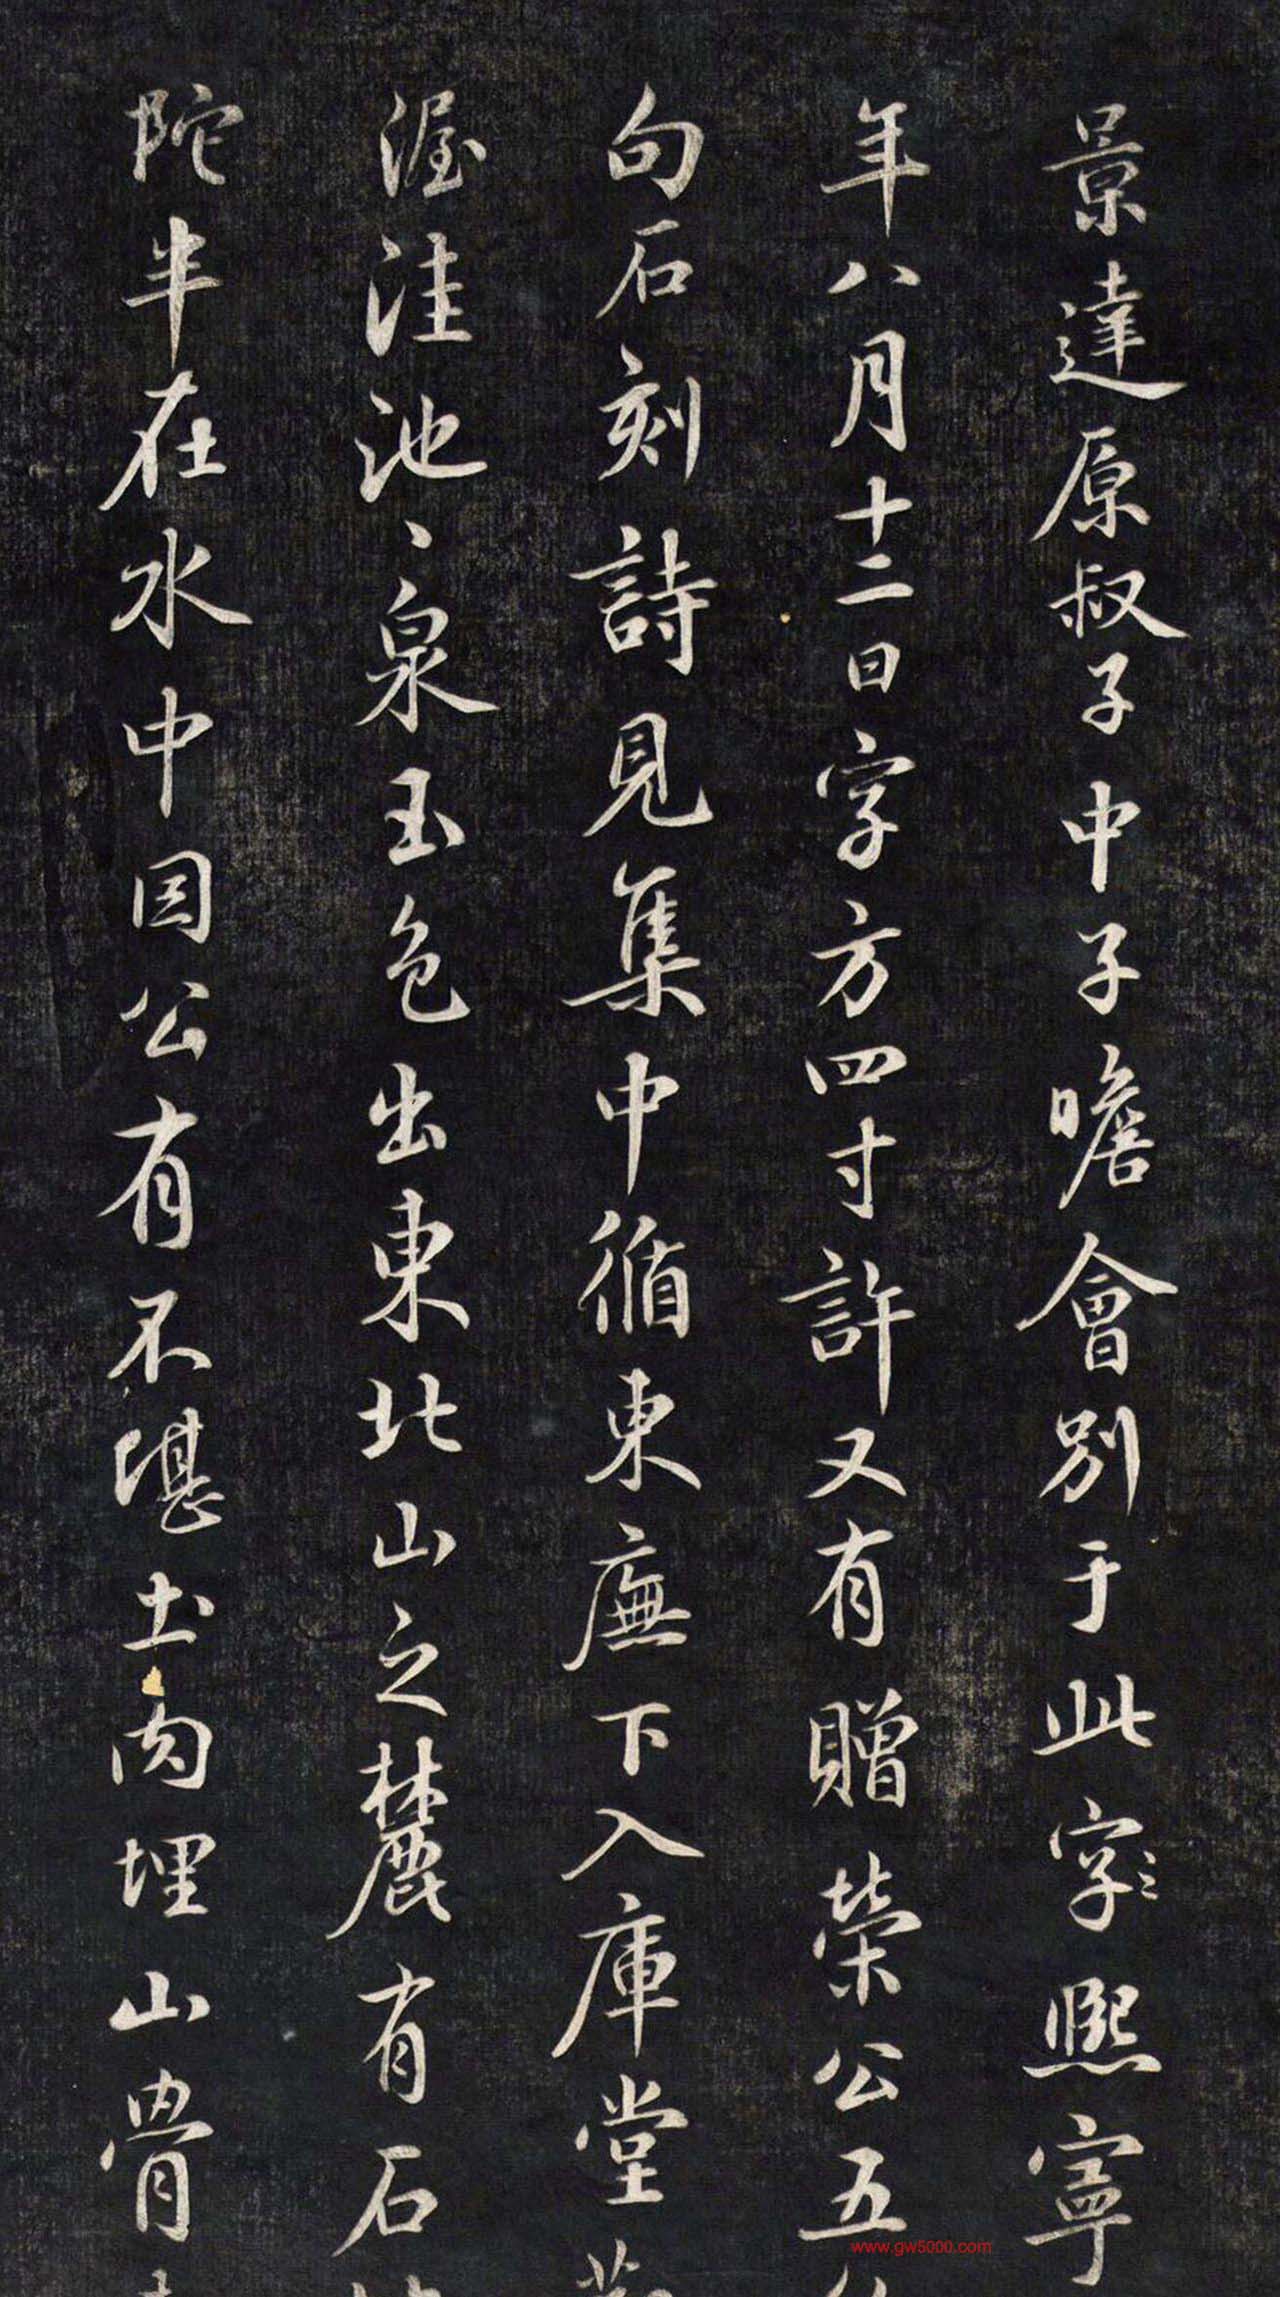 景達原叔子中子瞻會別于此字之熙寧
年八月十二日字方四寸許又有贈榮公五
句石刻詩見集中循東廡下入庫堂
渥洼池〻泉玉色出東北山之麓有石
陀半在水中因公有不堪土肉埋山骨
www.gw5000.com